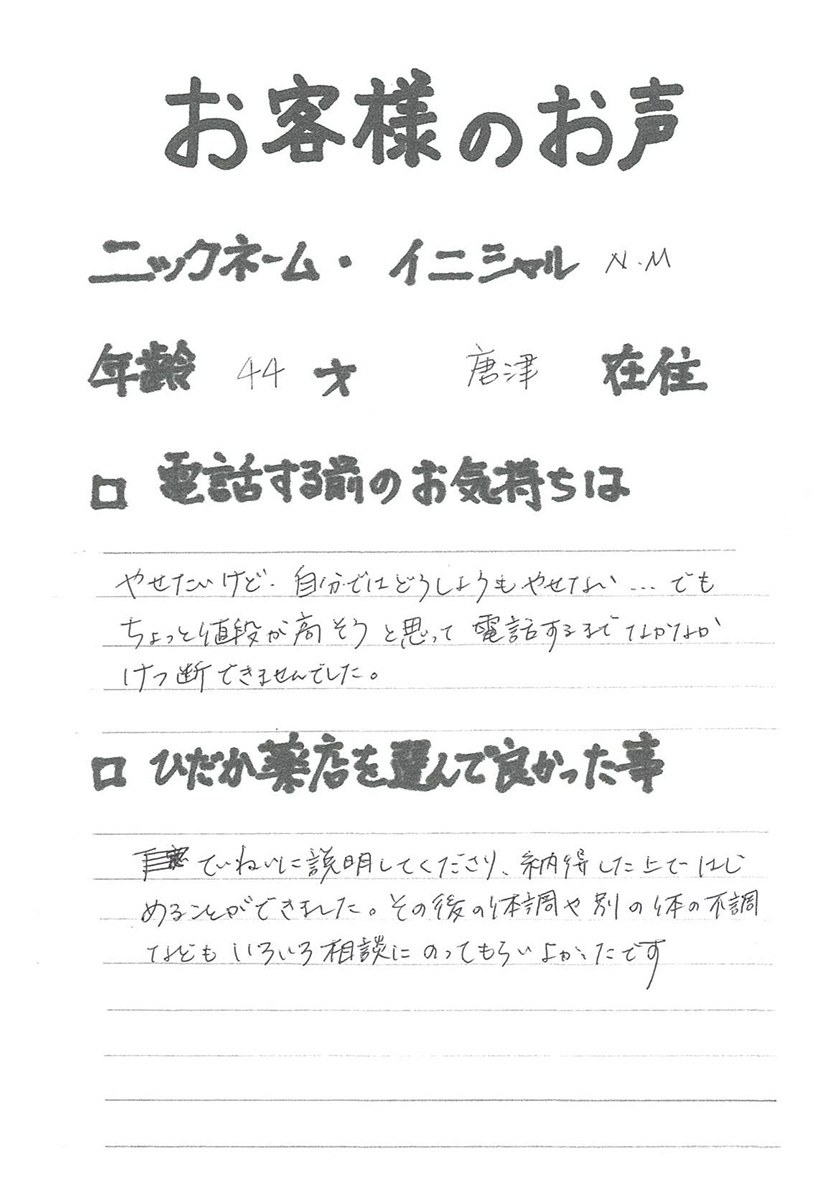 お客様のお声
ニックネーム・イニシャル N.M
年齢 44 才 唐津 在住
□ 電話する前のお気持ちは
やせたいけど、自分ではどうしようもやせない…でも
ちょっと値段が高そうと思って電話するまでなかなか
けつ断できませんでした。
□ ひだか薬店を選んで良かった事
ていねいに説明してくださり、納得した上ではじ
めることができました。その後の体調や別の体の不調
などもいろいろ相談にのってもらいよかったです